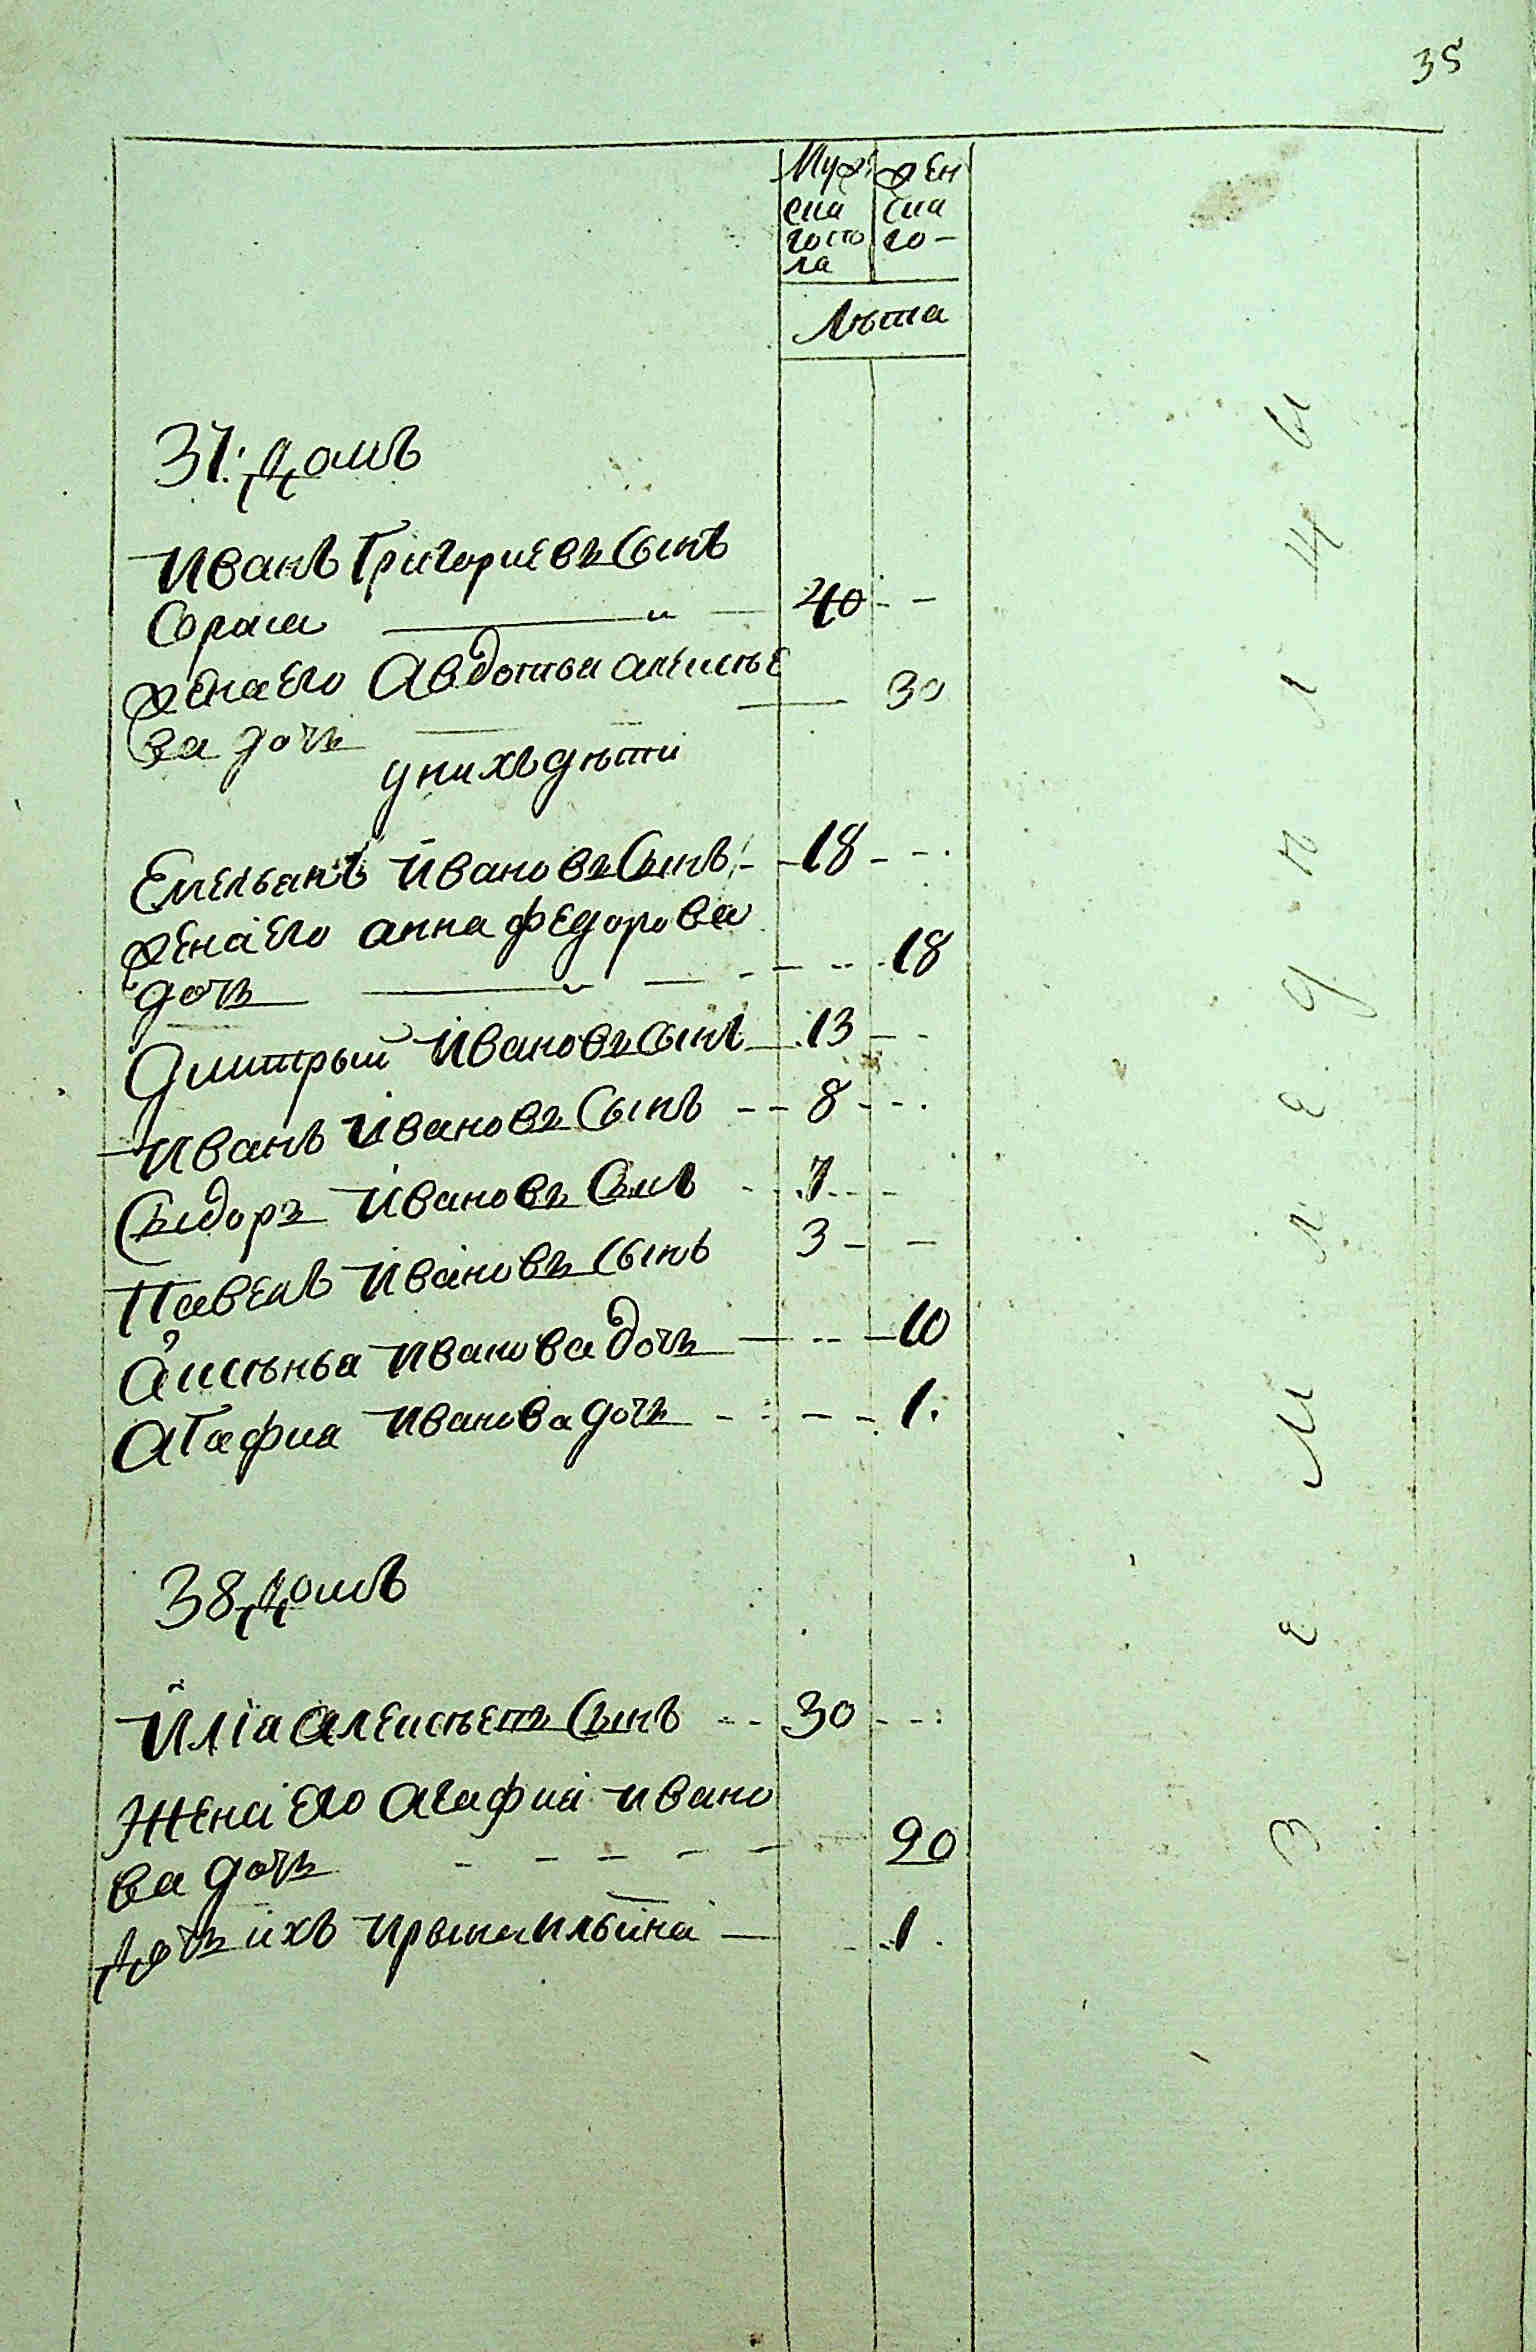 35
Муже ска го по ла
жен ска го -
Лѣта
37: Домъ
Иванъ Григориевъ Сынъ
Сорака 40
жена его Авдотьа алеисѣе
ва дочь 30
у нихъ дѣти
Емельанъ Ивановъ Сынъ 18
жена его анна федорова
дочь 18
Дмитрый Ивановъ Сынъ 13
Иванъ Ивановъ Сынъ 8
Сыдоръ Ивановъ Сынъ 7
Павелъ Ивановъ Сынъ 3
Аисѣньа Иванова дочь 10
Агафиа Иванова дочь 1
38 Домъ
Илїа Алеисѣевъ Сынъ 30
Жена его Агафиа Ивано
ва дочь 20
Дочь ихъ Ирына Ильина 1
земледелцы